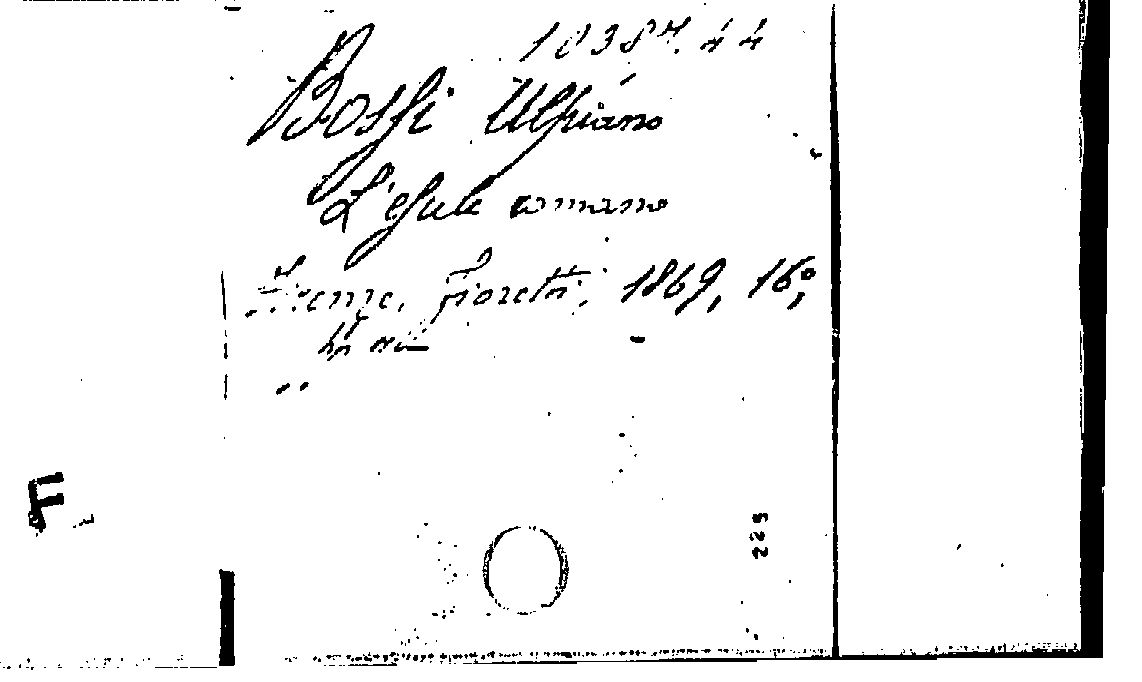 10387.44
Bossi Ulpiano
L'esule romano
Firenze, Fioretti, 1869, 16°,
F
225